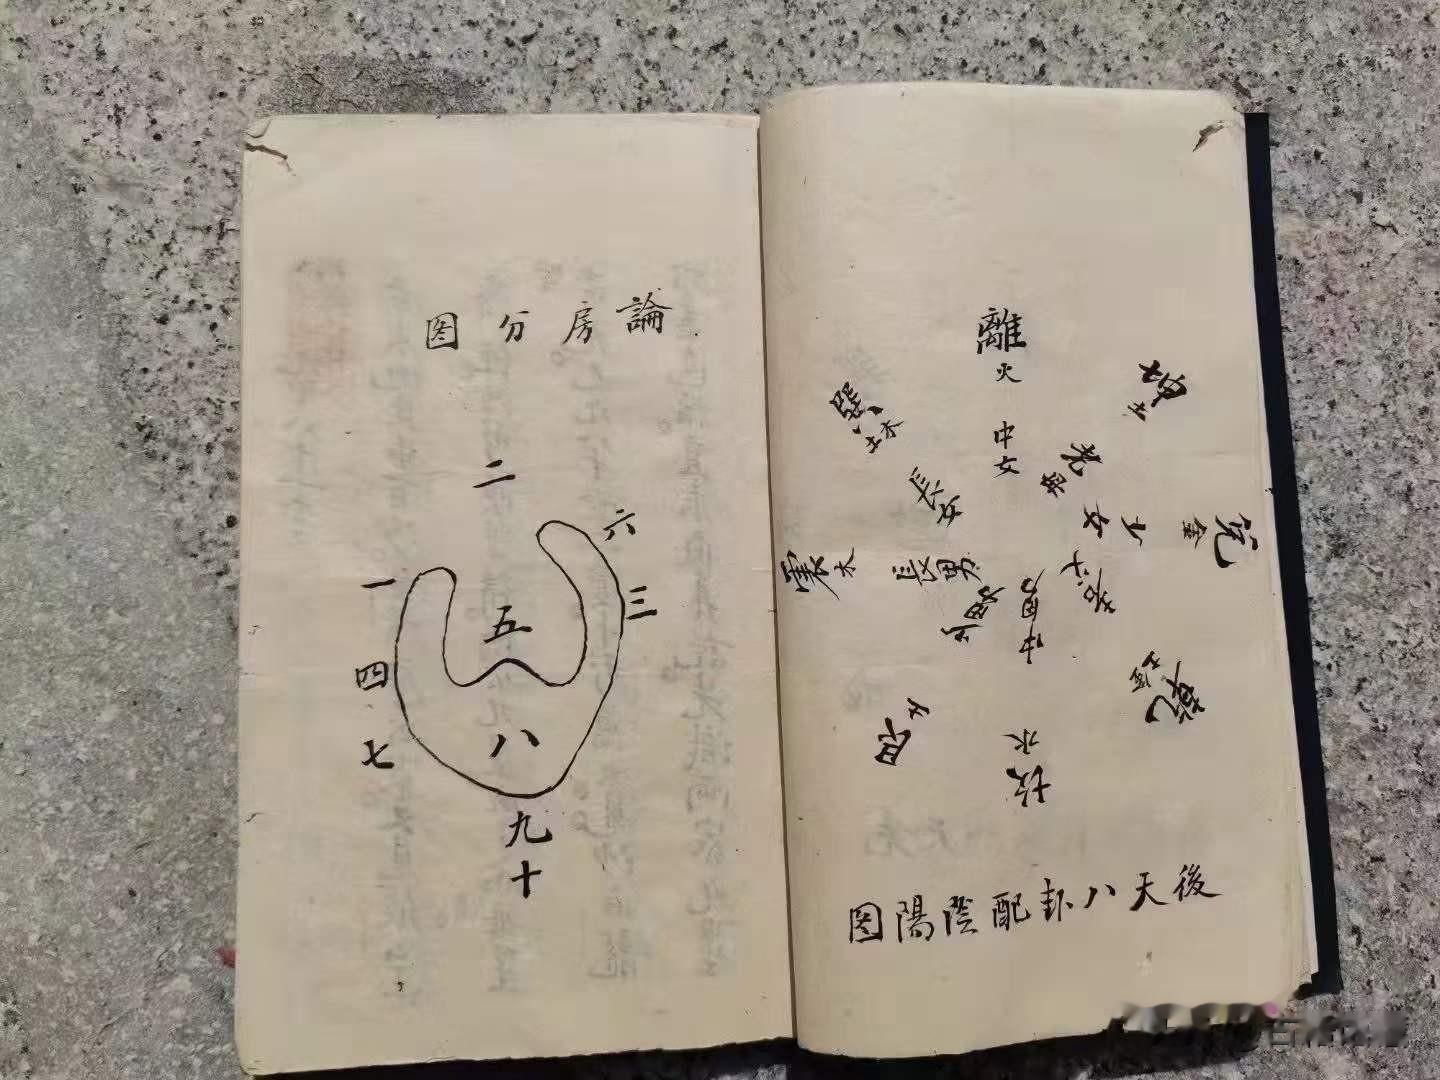 離火 中女
坤土 老母
兌金 少女
乾金
坎水 中男
艮土 少男
震木 長男
巽木 長女
後天八卦配陰陽图
論房分图
二
六
一
三
五
四
七
八
九
十